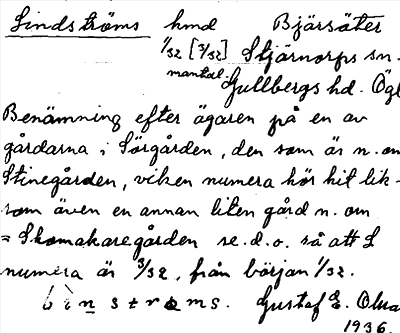 Lindströms hmd Bjärsäter
1/32 [3/32] Stjärnorps sn.
mantal. Gullbergs hd. Ögl
Benämning efter ägaren på en av
gårdarna i Sörgården, den som är n. om
Stinegården, vilken numera hör hit lik-
som även en annan liten gård n. om
= Skomakaregården se. d. o. så att L
numera är 3/32, från början 1/32.
lìn stròms. Gustaf E. Olua
1936.